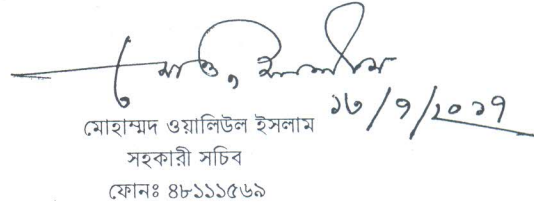 ১৬/৭/২০১৭
মোহাম্মদ ওয়ালিউল ইসলাম
সহকারী সচিব
ফোনঃ ৪৮১১১৫৬৯